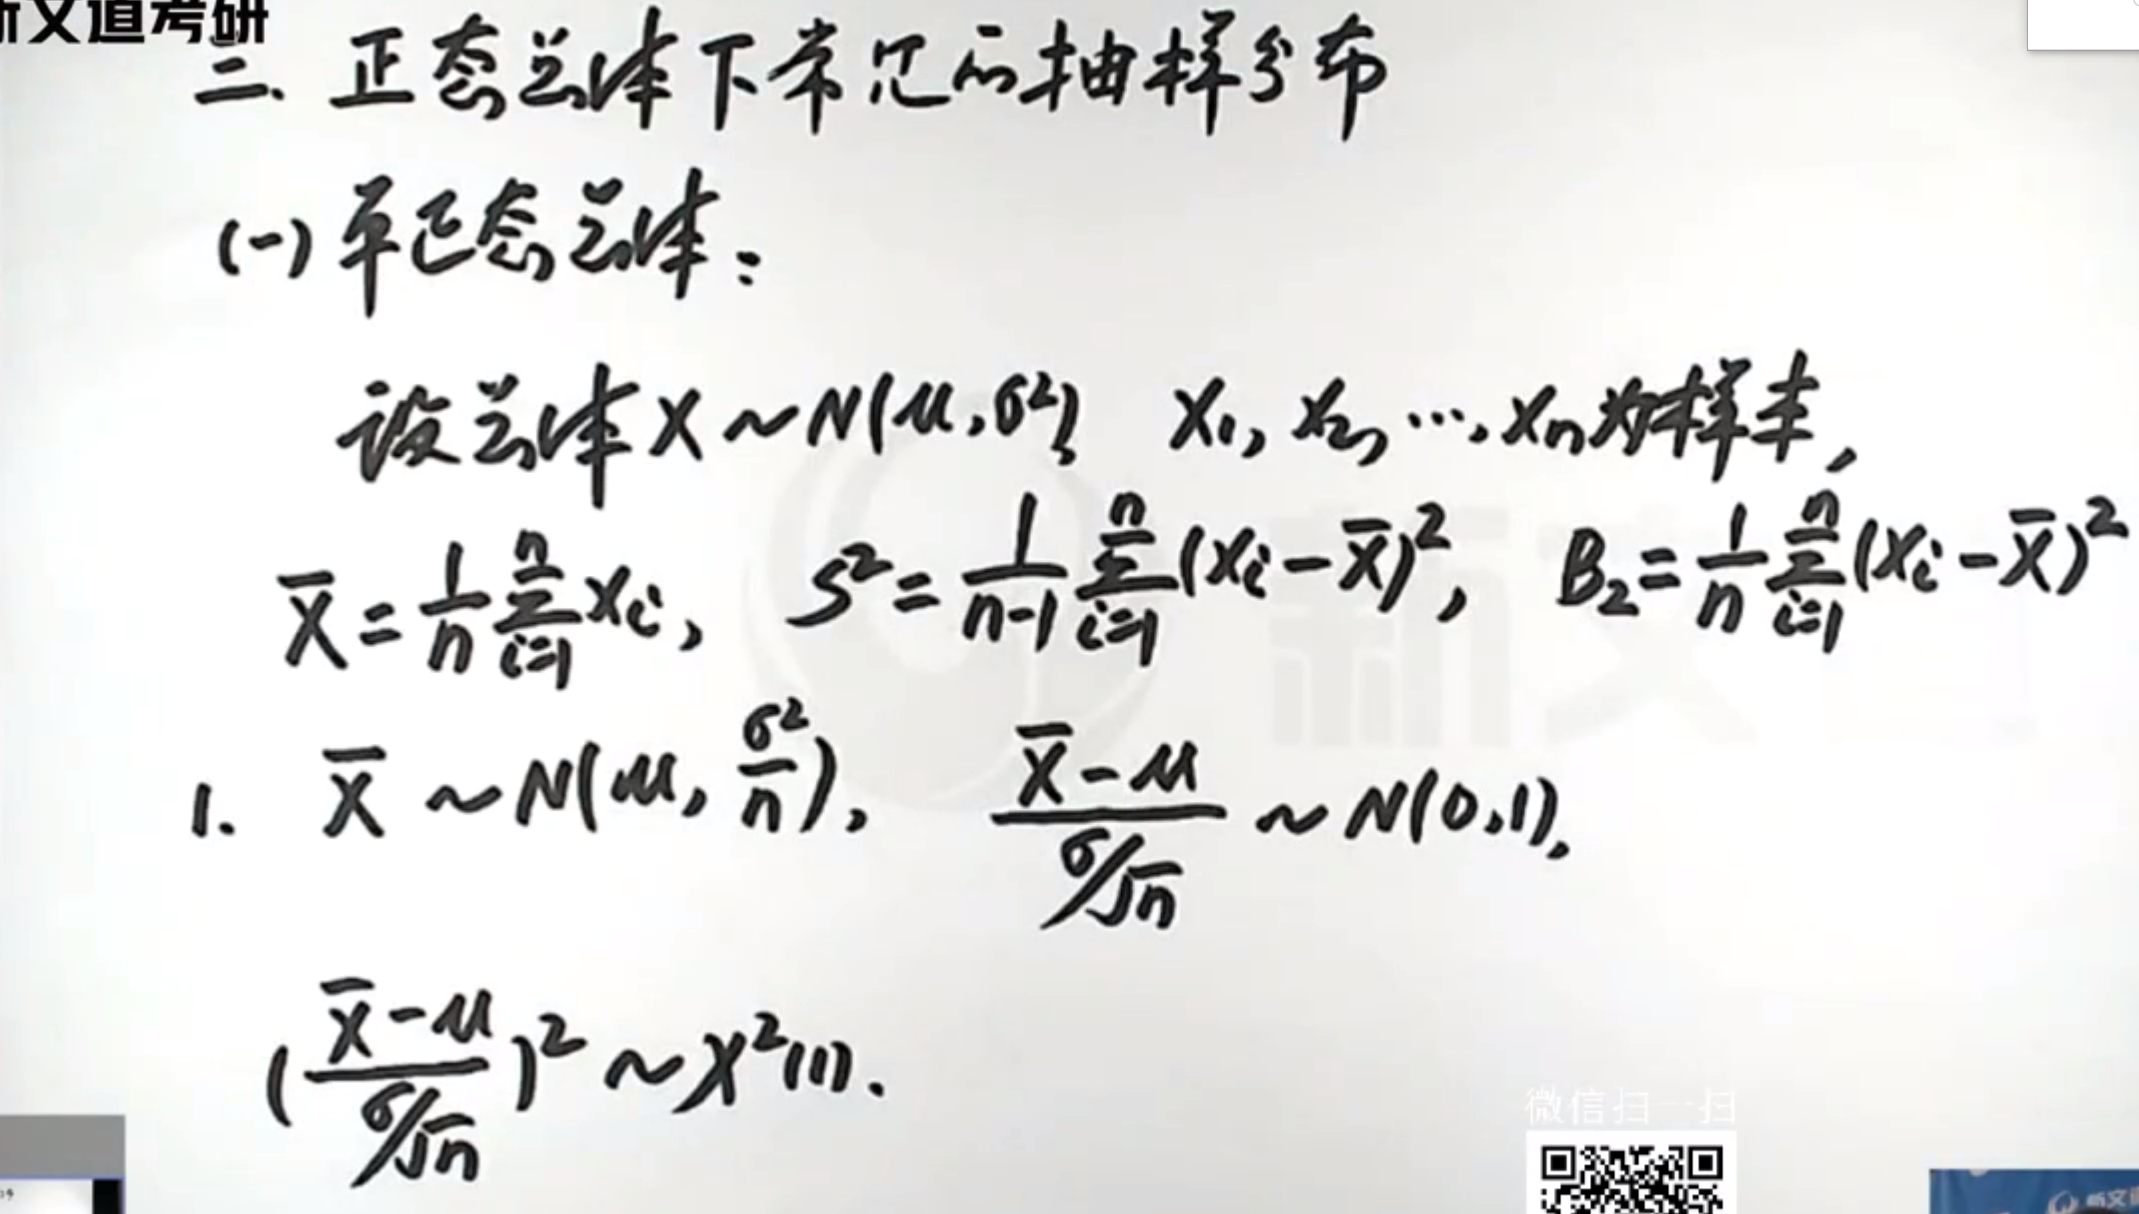 新文道考研
二. 正态总体下常见的抽样分布
(一) 单正态总体:
设总体 X ~ N(μ, σ²), X₁, X₂, …, Xₙ 为样本,
X̄ = 1/n ∑ᵢ₌₁ⁿ Xᵢ, S² = 1/(n-1) ∑ᵢ₌₁ⁿ (Xᵢ - X̄)², B₂ = 1/n ∑ᵢ₌₁ⁿ (Xᵢ - X̄)²
1. X̄ ~ N(μ, σ²/n), (X̄ - μ)/(σ/√n) ~ N(0,1),
((X̄ - μ)/(σ/√n))² ~ χ²(1).
微信扫一扫
新文